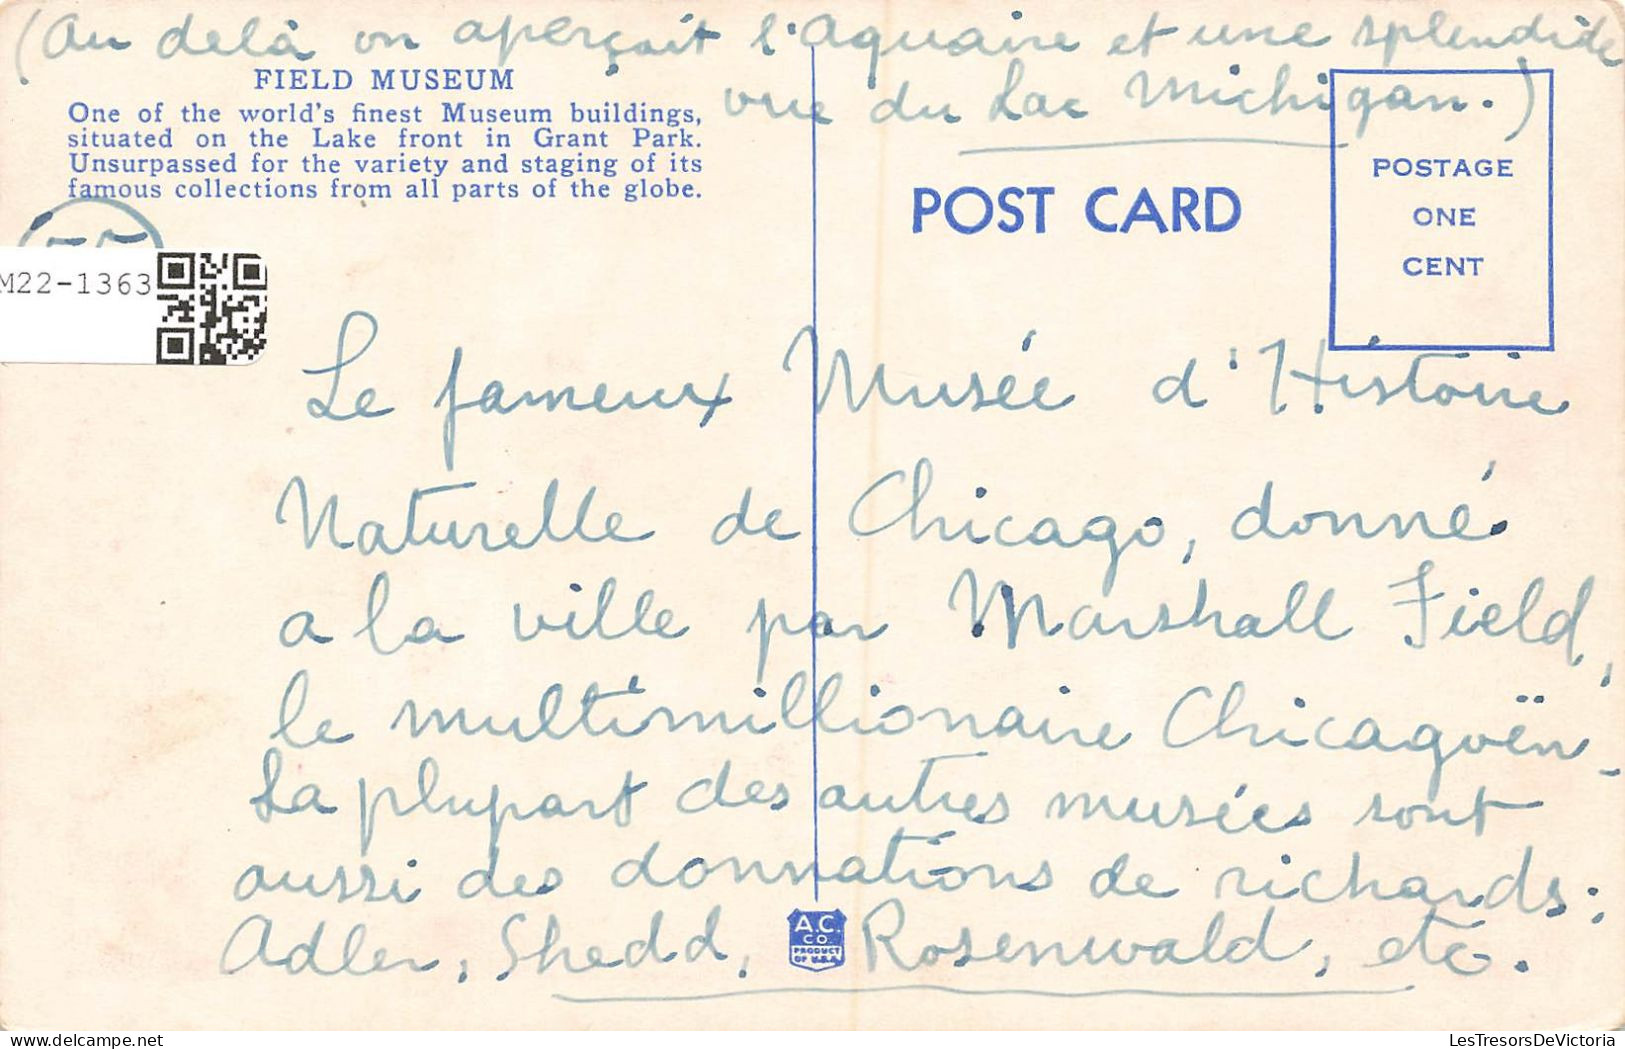 (Au delà on aperçoit l'Aquaire et une splendide
vue du Lac Michigan.)
FIELD MUSEUM
One of the world's finest Museum buildings,
situated on the Lake front in Grant Park.
Unsurpassed for the variety and staging of its
famous collections from all parts of the globe.
POST CARD
POSTAGE
ONE
CENT
M22-1363
Le fameux Musée d'Histoire
Naturelle de Chicago, donné
a la ville par Marshall Field,
le multimillionaire Chicagoën_
La plupart des autres musées sont
aussi des donnations de richards:
Adler, Shedd, Rosenwald, etc.
A.C.
CO.
PRODUCT
OF U.S.A.
LesTresorsDeVictoria